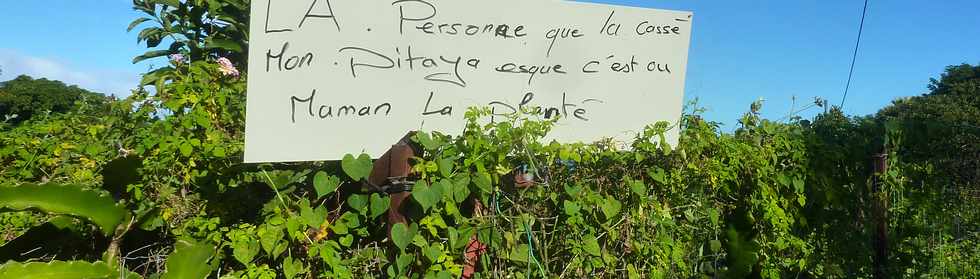 LA. Personne que la cassé
Mon Pitaya esque c'est ou
Maman La planté